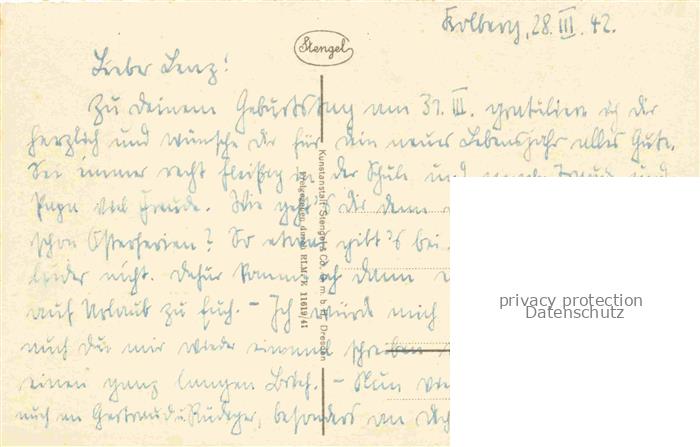 Kolberg, 28. III. 42.
Stengel
Lieber Lenz!
Zu deinem Geburtstag am 31. III. gratuliere ich dir
herzlich und wünsche dir für dein neues Lebensjahr alles Gute.
Sei immer recht fleißig in der Schule und
Papa viel Freude. Wie geht's dir denn
schon Osterferien? So etwas gibt's bei
leider nicht. Dafür komme ich dann
auf Urlaub zu Euch. – Ich würde mich
auch du mir wieder einmal schreiben
einen ganz langen Brief. – Nun
auch an Gertraud u. Rüdiger, besonders an dich
Kunstanstalt Stengel & Co., G.m.b.H., Dresden
Freigegeben durch RLM/K 11619/41
privacy protection
Datenschutz